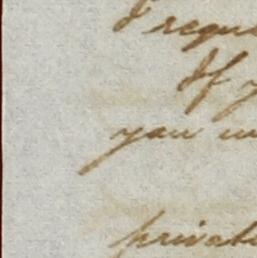 I requ
If y
you
privat